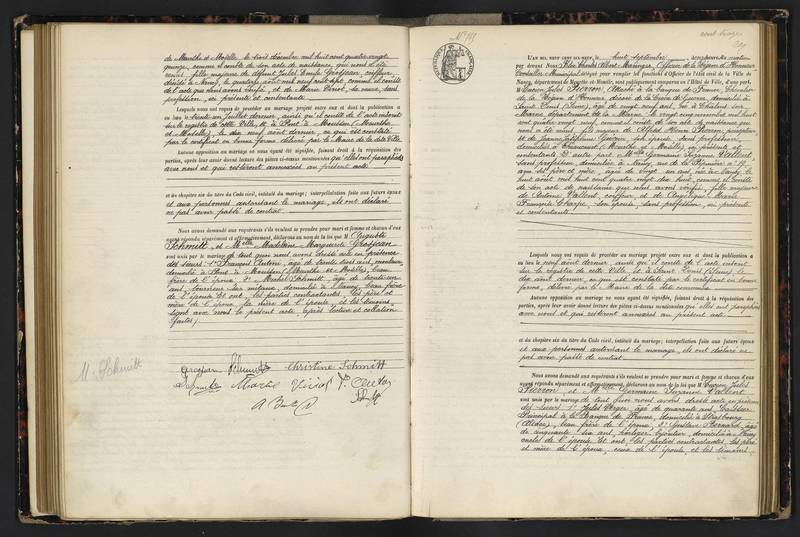 de Meurthe et Moselle, le trois décembre mil huit cent quatre vingt
quinze, comme il conste de son acte de naissance, qui nous a été
remis, fille majeure de défunt Jules Emile Grosjean, coiffeur,
décédé à Nancy, le quatorze août mil neuf cent sept, comme il conste
de l'acte que nous avons vérifié, et de Marie Viriot, sa veuve, sans
profession, ici présente et contentante
Lesquels nous ont requis de procéder au mariage projeté entre eux et dont la publication a
eu lieu le trente un Juillet dernier, ainsi qu'il conste de l'acte inscrit
sur le registre de cette Ville, et à Pont à Mousson (Meurthe
et Moselle), le dix août dernier, ce qui est constaté
par le certificat en bonne forme délivré par le Maire de la dite Ville
Aucune opposition au mariage ne nous ayant été signifiée, faisant droit à la réquisition des
parties, après leur avoir donné lecture des pièces ci-dessus mentionnées qu'elles ont paraphées
avec nous et qui resteront annexées au présent acte
et du chapitre six du titre du Code civil, intitulé du mariage; interpellation faite aux futurs époux
et aux personnes autorisant le mariage, ils ont déclaré
ne pas avoir passé de contrat
Nous avons demandé aux requérants s'ils veulent se prendre pour mari et femme et chacun d'eux
ayant répondu séparément et affirmativement, déclarons au nom de la loi que M. Auguste
Schmitt et Melle Madeleine Marguerite Grosjean
sont unis par le mariage de tout quoi nous avons dressé acte en présence
des sieurs 1° François
domicilié à Pont à Mousson (Meurthe et Moselle), beau
frère de l'époux, 2° Michel Schmitt, âgé de trente un
ans, tourneur sur métaux, domicilié à Nancy, beau frère
de l'épouse. Et ont, les parties contractantes, les père et
mère de l'époux, la mère de l'épouse, et les témoins,
signé avec nous le présent acte, après lecture et collation
faites.
M. Schmitt
Grosjean Schmitt Christine Schmitt
Schmitt Marie Viriot
N° 749
L'AN MIL NEUF CENT DIX-NEUF, le huit septembre
par devant Nous Officier de la Légion d'Honneur
Conseiller Municipal délégué pour remplir les fonctions d'Officier de l'état civil de la Ville de
Nancy, département de Meurthe-et-Moselle, sont publiquement comparus en l'Hôtel de Ville, d'une part,
M. Lucien Jules Pierron, Attaché à la Banque de France, Chevalier
de la Légion d'Honneur, décoré de la Croix de Guerre, domicilié à
Saint Denis (Seine), âgé de vingt neuf ans, né à Châlons sur
Marne, département de la Marne, le vingt cinq novembre mil huit
cent quatre vingt neuf, comme il conste de son acte de naissance qui
nous a été remis, fils majeur de
présents et
contentants. D'autre part Melle Germaine Suzanne Vallent
sans profession, domiciliée à Nancy, rue de la Pépinière n° 19
avec ses père et mère, âgée de vingt un ans, née à Nancy le
huit août mil huit cent quatre vingt dix huit, comme il conste
de son acte de naissance que nous avons vérifié, fille majeure
de Antoine Vallent, coiffeur, et de Angélique Marie
Françoise Charpe, son épouse, sans profession, ici présents
et contentants
Lesquels nous ont requis de procéder au mariage projeté entre eux et dont la publication a
eu lieu le neuf août dernier, ainsi qu'il conste de l'acte inscrit
sur le registre de cette Ville, et à Saint Denis (Seine) le
dix août dernier, ce qui est constaté par le certificat en bonne
forme, délivré par le Maire de la dite commune
Aucune opposition au mariage ne nous ayant été signifiée, faisant droit à la réquisition des
parties, après leur avoir donné lecture des pièces ci-dessus mentionnées qu'elles ont paraphées
avec nous et qui resteront annexées au présent acte
et du chapitre six du titre du Code civil, intitulé du mariage; interpellation faite aux futurs époux
et aux personnes autorisant le mariage, ils ont déclaré ne
pas avoir passé de contrat
Nous avons demandé aux requérants s'ils veulent se prendre pour mari et femme et chacun d'eux
ayant répondu séparément et affirmativement, déclarons au nom de la loi que M. Lucien Jules
Pierron et Melle Germaine Suzanne Vallent
sont unis par le mariage de tout quoi nous avons dressé acte en présence
des sieurs 1° Jules Roger, âgé de quarante ans, Caissier
Principal à la Banque de France, domicilié à Strasbourg
(Alsace), beau frère de l'époux, 2° Gustave Bernard, âgé
de cinquante six ans, horloger bijoutier, domicilié à Nancy
oncle de l'épouse. Et ont, les parties contractantes, les père
et mère de l'époux, ceux de l'épouse, et les témoins,